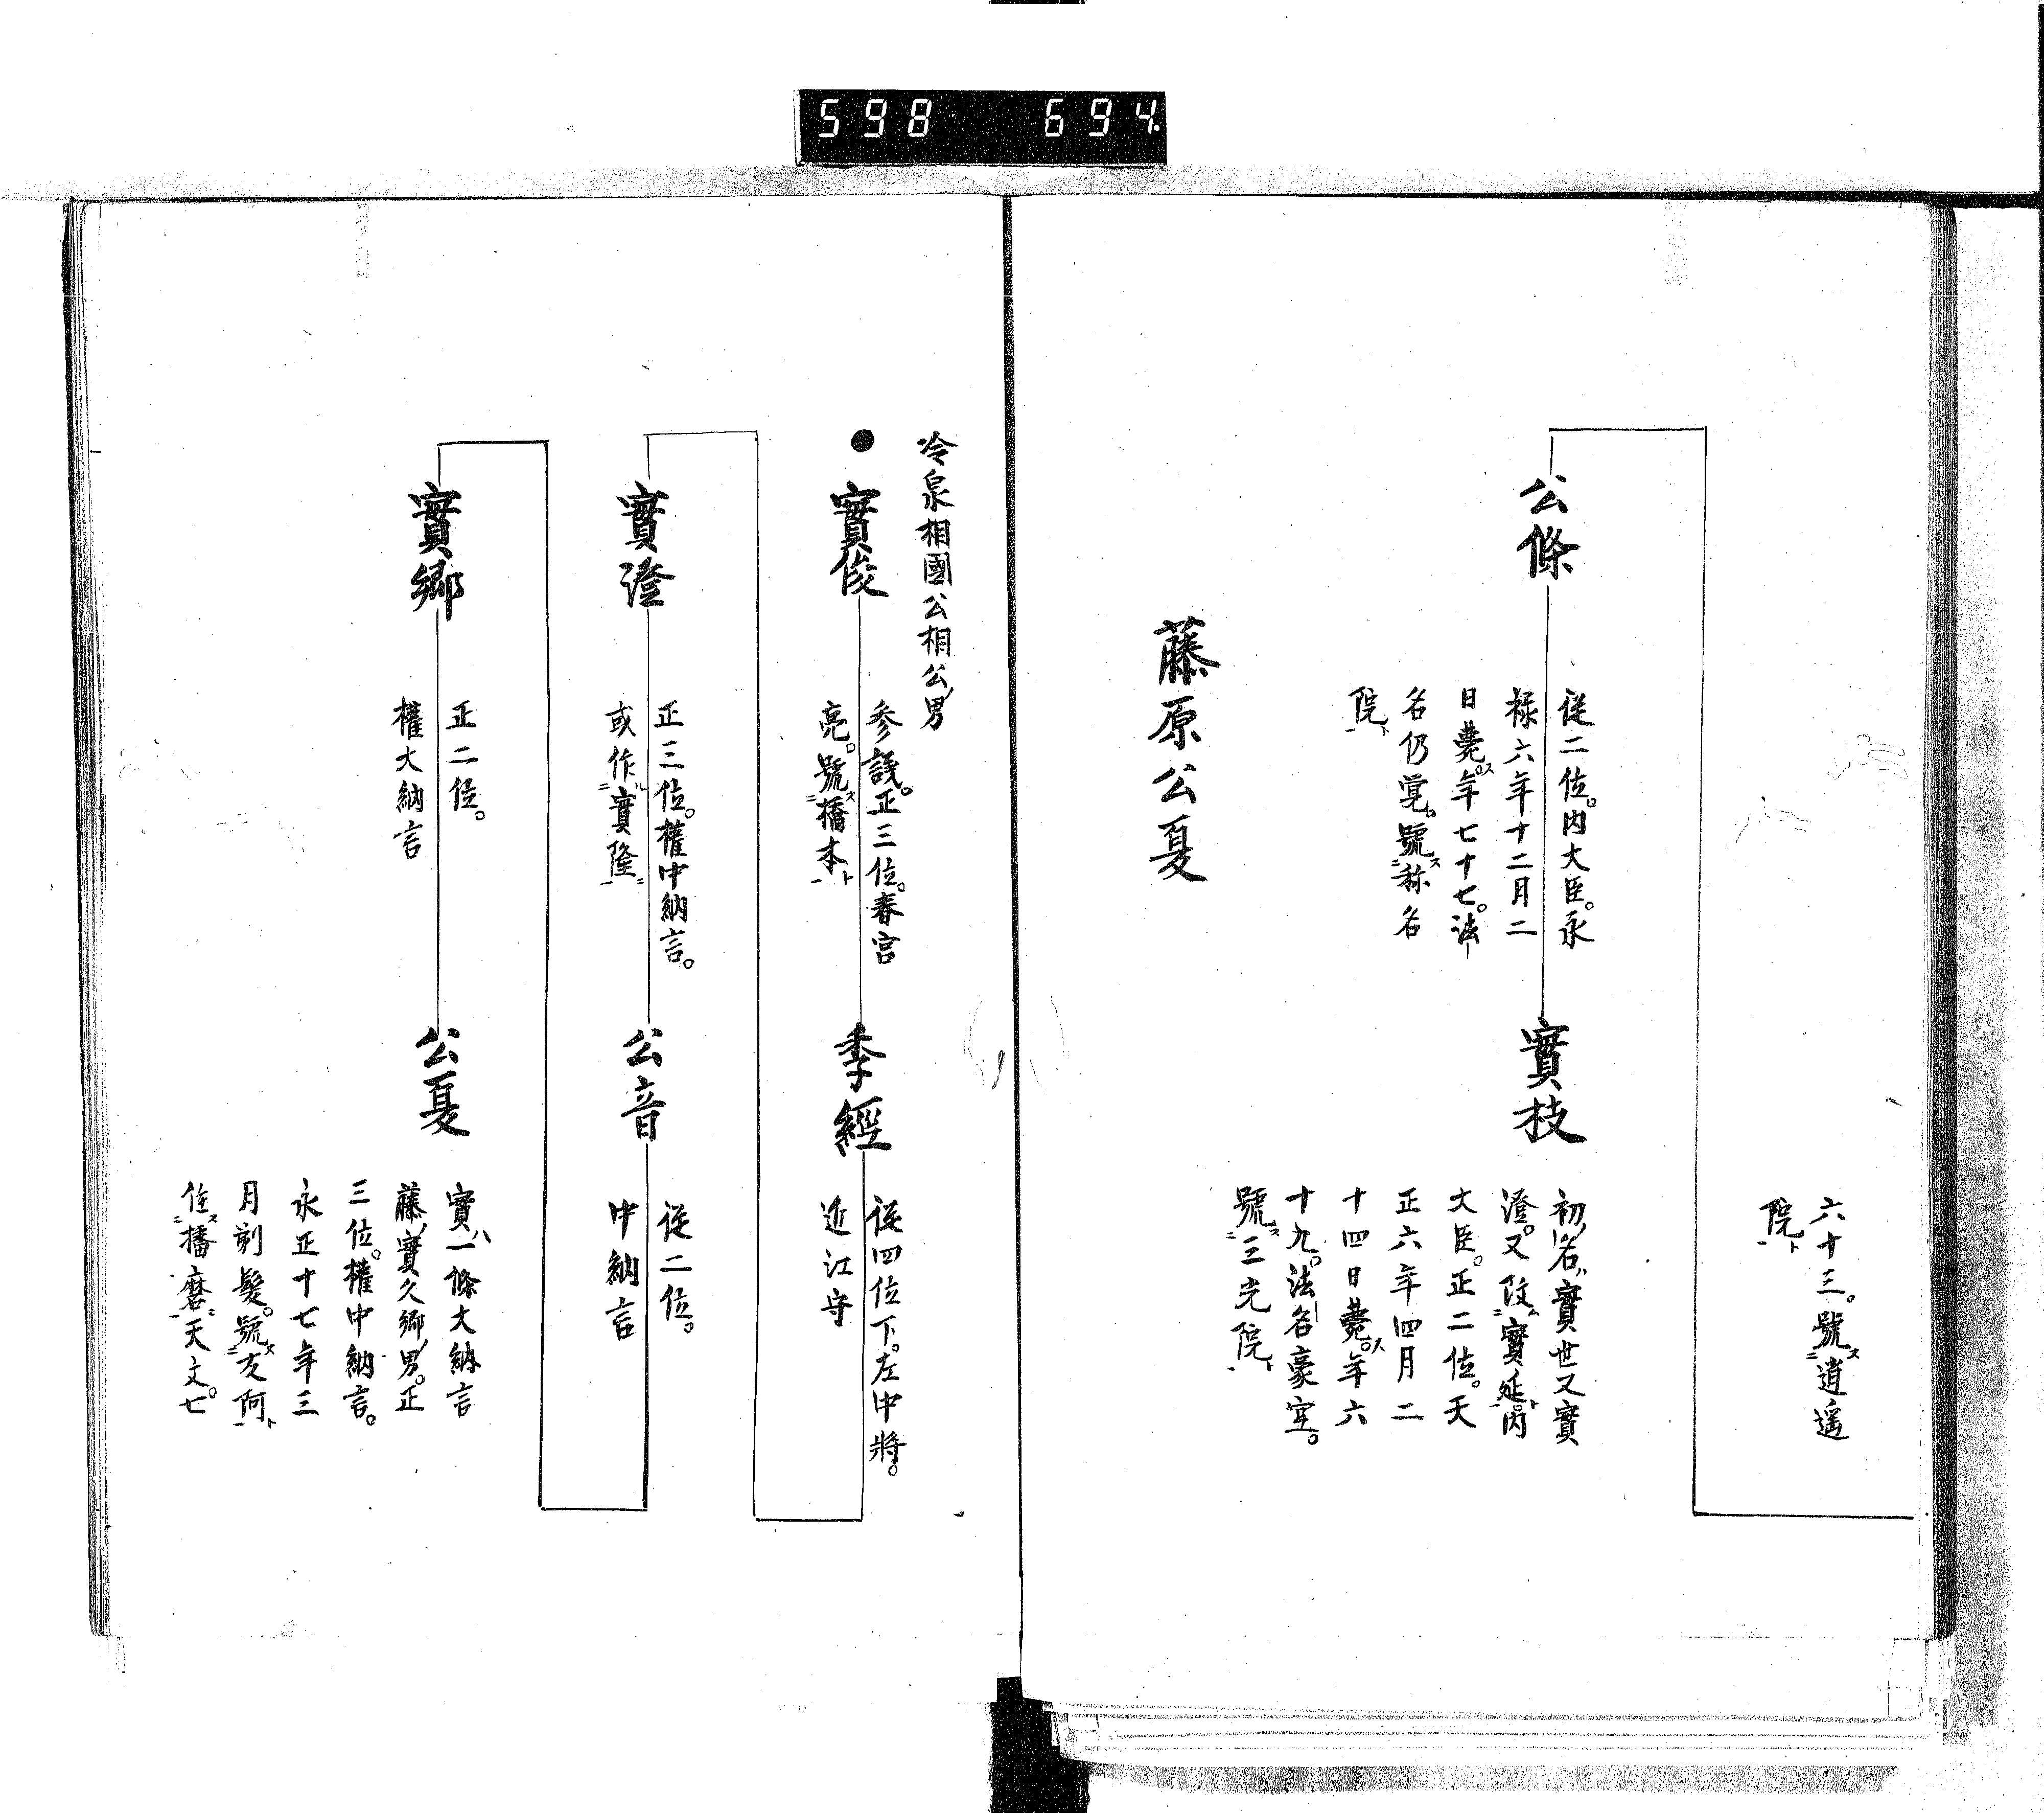 598 694
六十三。號逍遥
院
公條
従二位。内大臣。永
禄六年十二月二
日薨。年七十七。法
名仍覚。號称名
院
實枝
初ノ名ハ實世又實
澄。又改實延。内
大臣。正二位。天
正六年四月二
十四日薨。年六
十九。法名豪空。
號三光院
藤原公夏
冷泉相國公相公ノ男
實俊
参議。正三位。春宮
亮。號橋本
季經
従四位下。左中将。
近江守
實澄
正三位。權中納言。
或作實隆
公音
従二位。
中納言
實郷
正二位。
權大納言
公夏
實ハ一條大納言
藤ノ實久卿ノ男。正
三位。權中納言。
永正十七年三
月剃髮。號友阿
住播磨。天文。七